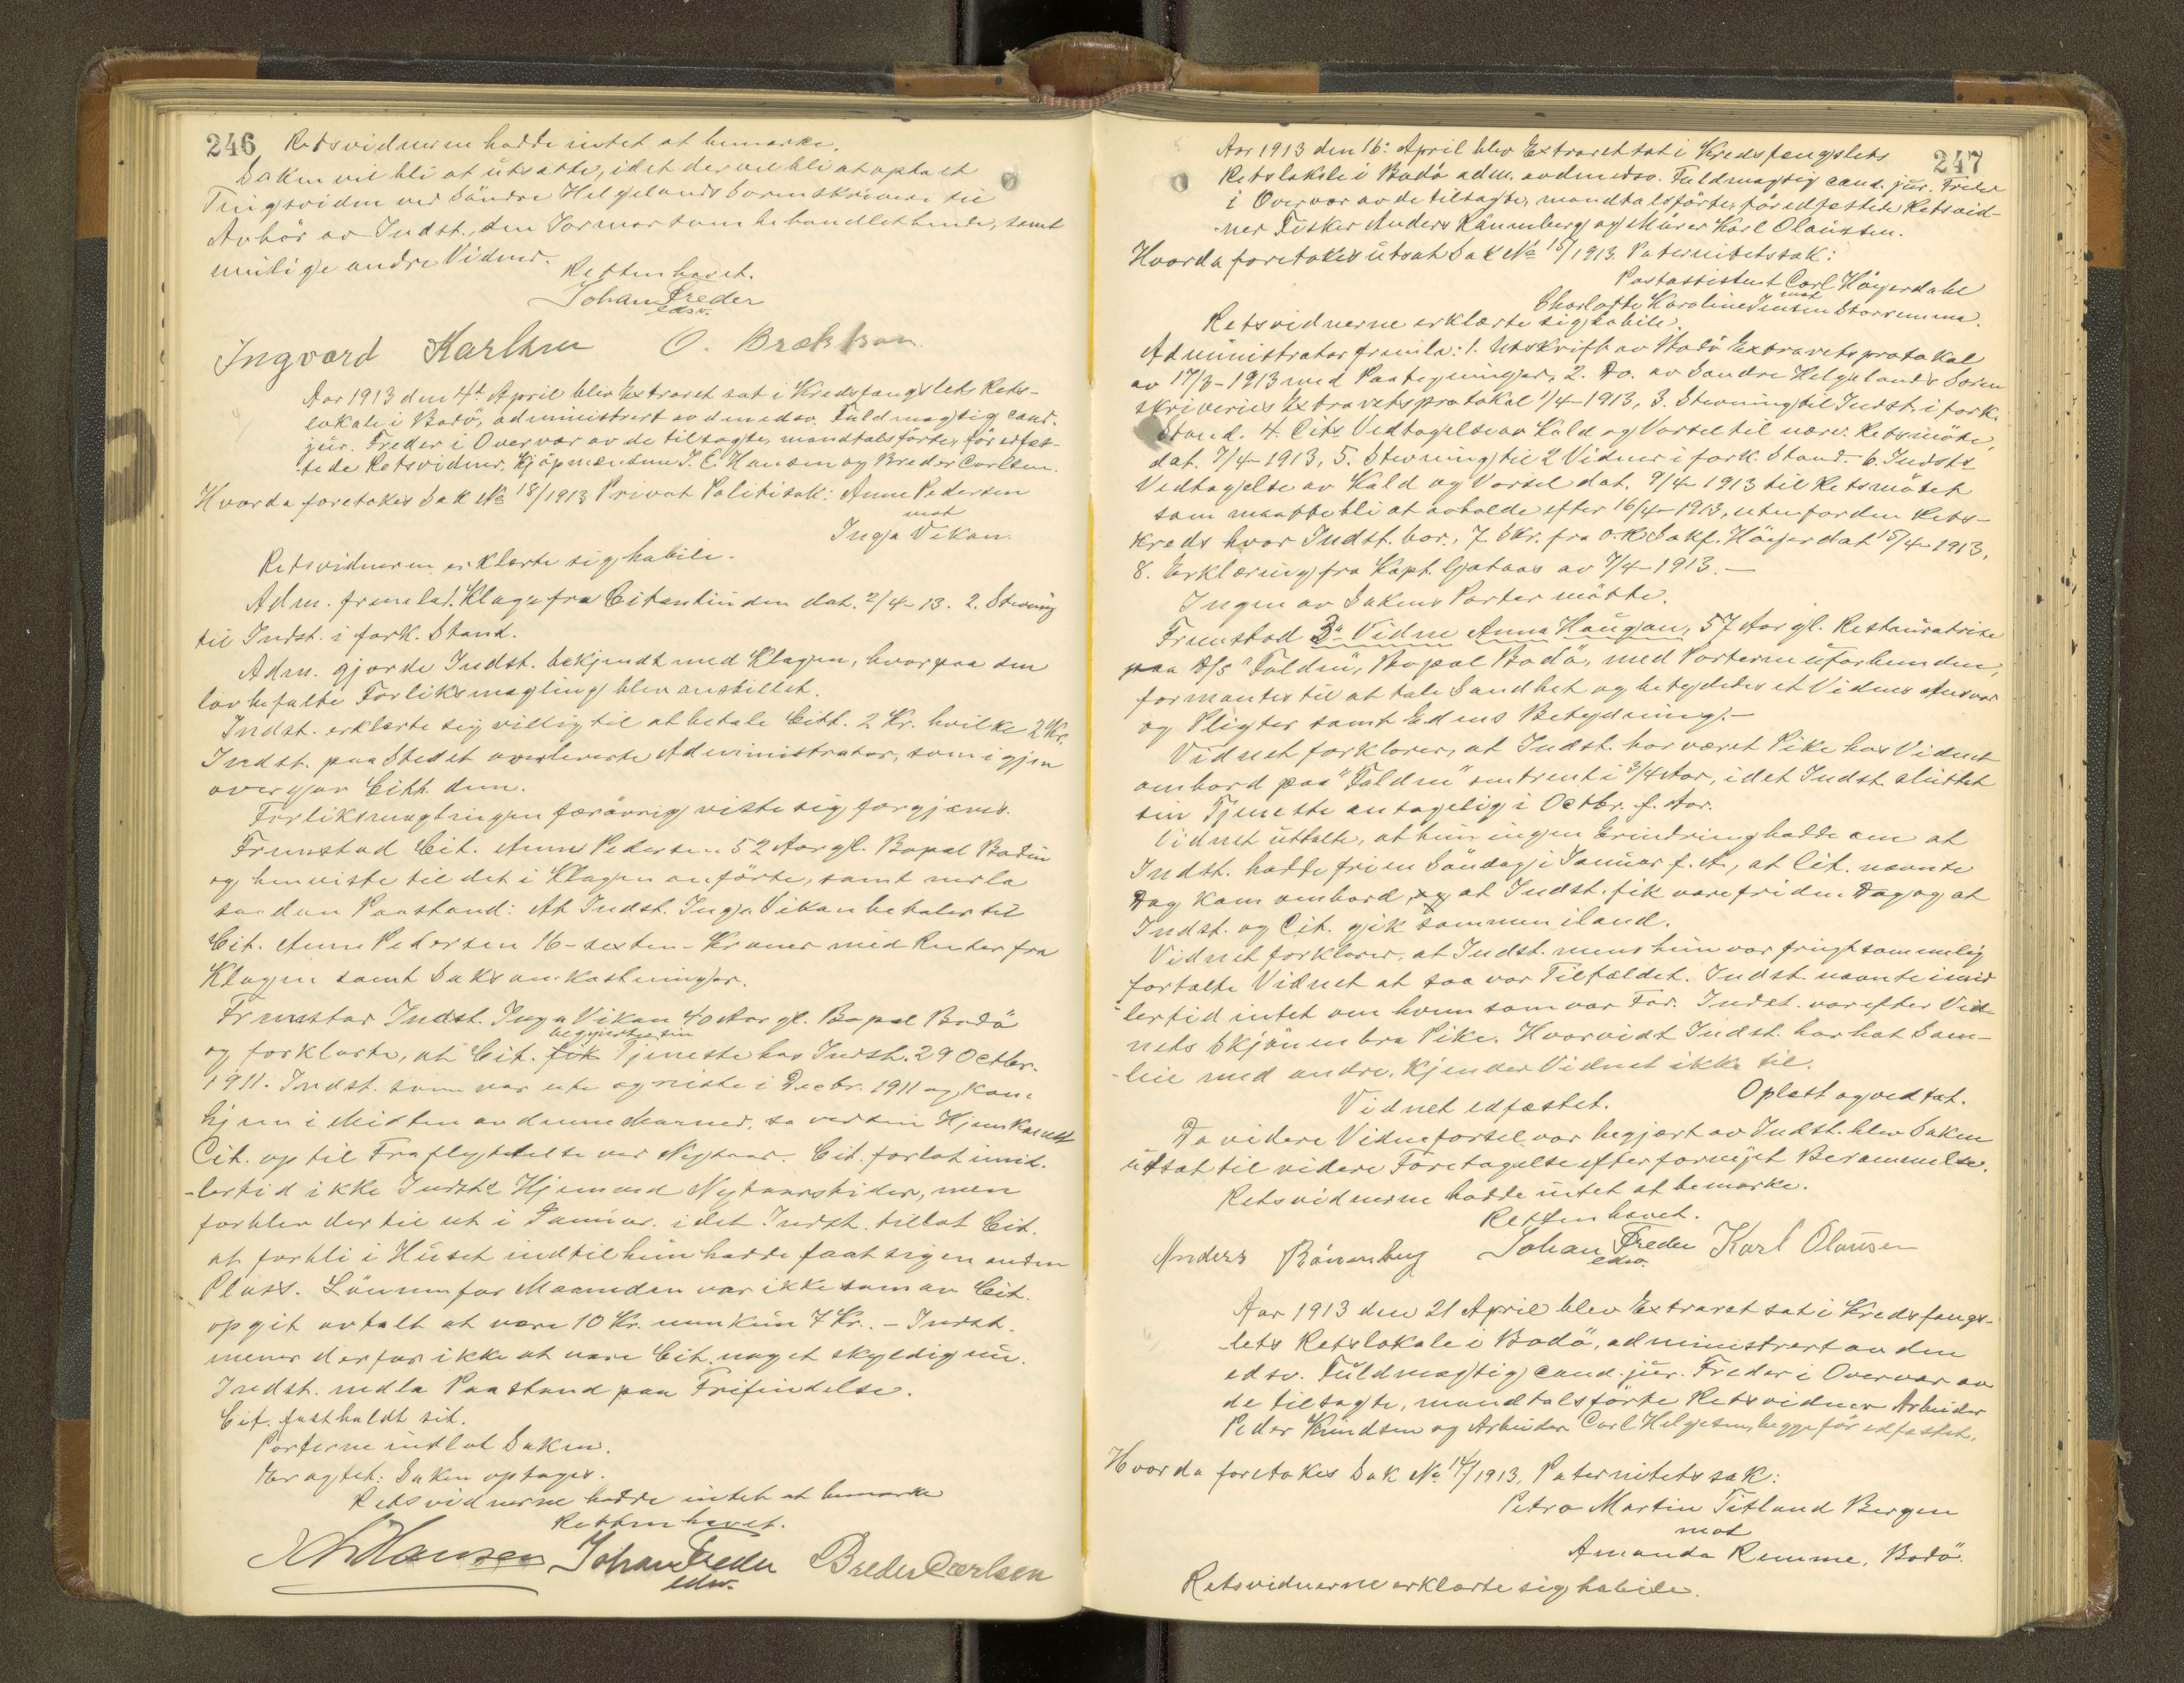 246 Retsvidnerne hadde intet at bemærke.
Saken vil bli at utsætte, idet der vil bli at opta et
Tingsvidne ved Söndre Helgelands Sorenskriveri til
Avhör av Indst., den Jormor som behandlet hende, samt
mulige andre Vidner.
Retten hævet.
Johan Freder
edsv.
Ingvard Karlsen O. Brækkan
Aar 1913 den 4de April blev Extraret sat i Kredsfængslets Rets-
lokale i Bodö, administrert av den edsv. Fuldmægtig cand.
jur. Freder i Overvær av de tilsagte, mandtalsförte, för edfæs-
tede Retsvidner, Kjöpmændene J. E. Hansen og Breder Carlsen.
Hvorda foretokes Sak No 18/1913 Privat Politisak: Anne Pedersen
mot
Inga Vikan.
Retsvidnerne erklærte sig habile.
Adm. fremla 1. Klage fra Citantinden dat. 2/4-13. 2. Stevning
til Indst. i fork. Stand.
Adm. gjorde Indst. bekjendt med Klagen, hvorpaa den
lovbefalte Forliksmægling blev anstillet.
Indst. erklærte sig villig til at betale Citt. 2 Kr. hvilke 2 Kr.
Indst. paa Stedet overleverte Administrator, som igjen
overgav Citt. dem.
Forliksmæglingen forövrig viste sig forgjæves.
Fremstod Cit. Anne Pedersen 52 Aar gl. Bopæl Bodin
og henviste til det i Klagen anförte, samt nedla
saadan Paastand: At Indst. Inga Vikan betaler til
Cit. Anne Pedersen 16 - sexten - Kroner med Renter fra
Klagen samt Saksomkostninger.
Fremstod Indst. Inga Vikan 40 Aar gl. Bopæl Bodö
begyndte sin
og forklarte, at Cit. fik Tjeneste hos Indst. 29 Octbr.
1911. Indst. som var ute og reiste i Decbr. 1911 og kom
hjem i Midten av denne Maaned, sa ved sin Hjemkomst
Cit. op til Fraflyttelse ved Nytaar. Cit. forlot imid-
-lertid ikke Indsts Hjem ved Nytaarstider, men
forblev der til ut i Januar, idet Indst. tillot Cit.
at forbli i Huset indtil hun hadde faat sig en anden
Plass. Lönnen for Maaneden var ikke som av Cit.
opgit avtalt at være 10 Kr. men kun 7 Kr. - Indst.
mener derfor ikke at være Cit. noget skyldig nu.
Indst. nedla Paastand paa Frifindelse.
Cit. fastholdt sit.
Parterne indlot Saken.
Eragtet: Saken optages.
Retsvidnerne hadde intet at bemærke
Retten hævet.
Hansen Johan Freder Breder Carlsen
edsv.
247
Aar 1913 den 16: April blev Extraret sat i Kredsfængslets
Retslokale i Bodö adm. av den edsv. Fuldmægtig cand. jur. Freder
i Overvær av de tilsagte, mandtalsförte, för edfæstede Retsvid-
-ner Fisker Anders Rånenberg og Murer Karl Olaussen.
Hvorda foretokes utsat Sak No 15/1913 Paternitetssak:
Postassistent Carl Höyerdahl
mot
Charlotte Karoline Jensen Storremma.
Retsvidnerne erklærte sig habile.
Administrator fremla: 1. Utskrift av Bodö Extraretsprotokol
av 17/3-1913 med Paategninger, 2. Do. av Söndre Helgelands Soren
skriveries Extraretsprotokol 1/4-1913, 3. Stevning til Indst. i fork.
Stand. 4. Cits Vedtagelse av Kald og Varsel til nærv. Retsmöte,
dat. 7/4-1913, 5. Stevning til 2 Vidner i fork. Stand. 6. Indsts
Vedtagelse av Kald og Varsel dat. 9/4 1913 til Retsmötet
som maatte bli at avholde efter 16/4-1913, utenfor den Rets-
kreds hvor Indst. bor, 7. Skr. fra o.r. Sakf. Höyer dat 15/4 1913,
8. Erklæring fra Kapt. Gataas av 7/4-1913.-
Ingen av Sakens Parter mötte.
Fremstod 3: Vidne Anna Haugan, 57 Aar gl. Restauratrise
paa D/S "Folden", Bopæl Bodö, med Parterne uforbunden,
formantes til at tale Sandhet og betydedes et Vidnes Ansvar
og Pligter samt Edens Betydning.-
Vidnet forklarer, at Indst. har været Pike hos Vidnet
ombord paa "Folden" omtrent i 3/4 Aar, idet Indst. sluttet
sin Tjeneste antagelig i Octbr. f. Aar.
Vidnet uttalte, at hun ingen Erindring hadde om at
Indst. hadde fri en Söndag i Januar f. A., at Cit. nævnte
Dag kom ombord, og at Indst. fik være fri den Dag og at
Indst. og Cit. gik sammen iland.
Vidnet forklarer, at Indst. mens hun var frugtsommelig
fortalte Vidnet at saa var Tilfældet. Indst. nævnte imid
-lertid intet om hvem som var Far. Indst. var efter Vid-
nets Skjön en bra Pike. Hvorvidt Indst. har hat Sam-
-leie med andre, kjender Vidnet ikke til.
Oplæst og vedtat.
Vidnet edfæstet.
Da videre Vidneförsel var begjært av Indst. blev Saken
utsat til videre Foretagelse efter fornyet Berammelse.
Retsvidnerne hadde intet at bemærke.
Retten hævet.
Anders Rånenberg Johan Freder Karl Olausen
edsv.
Aar 1913 den 21 April blev Extraret sat i Kredsfængs-
-lets Retslokale i Bodö, administrert av den
edsv. Fuldmægtig cand. jur. Freder i Overvær av
de tilsagte, mandtalsförte Retsvidner Arbeider
Peder Knudsen og Arbeider Carl Helgesen, begge för edfæstet.
Hvorda foretokes Sak No 14/1913. Paternitetssak:
Petro Martin Titland Bergen
mot
Amanda Remme, Bodö.
Retsvidnerne erklærte sig habile.